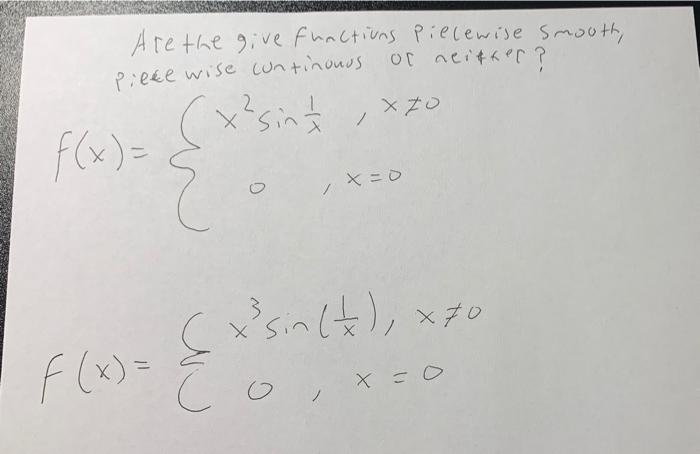 Are the give functions Pielewise Smooth,
Pieee wise continous or neither?
f(x) = { x² sin 1/x , x ≠ 0
0 , x = 0
f(x) = { x³ sin(1/x), x ≠ 0
0 , x = 0